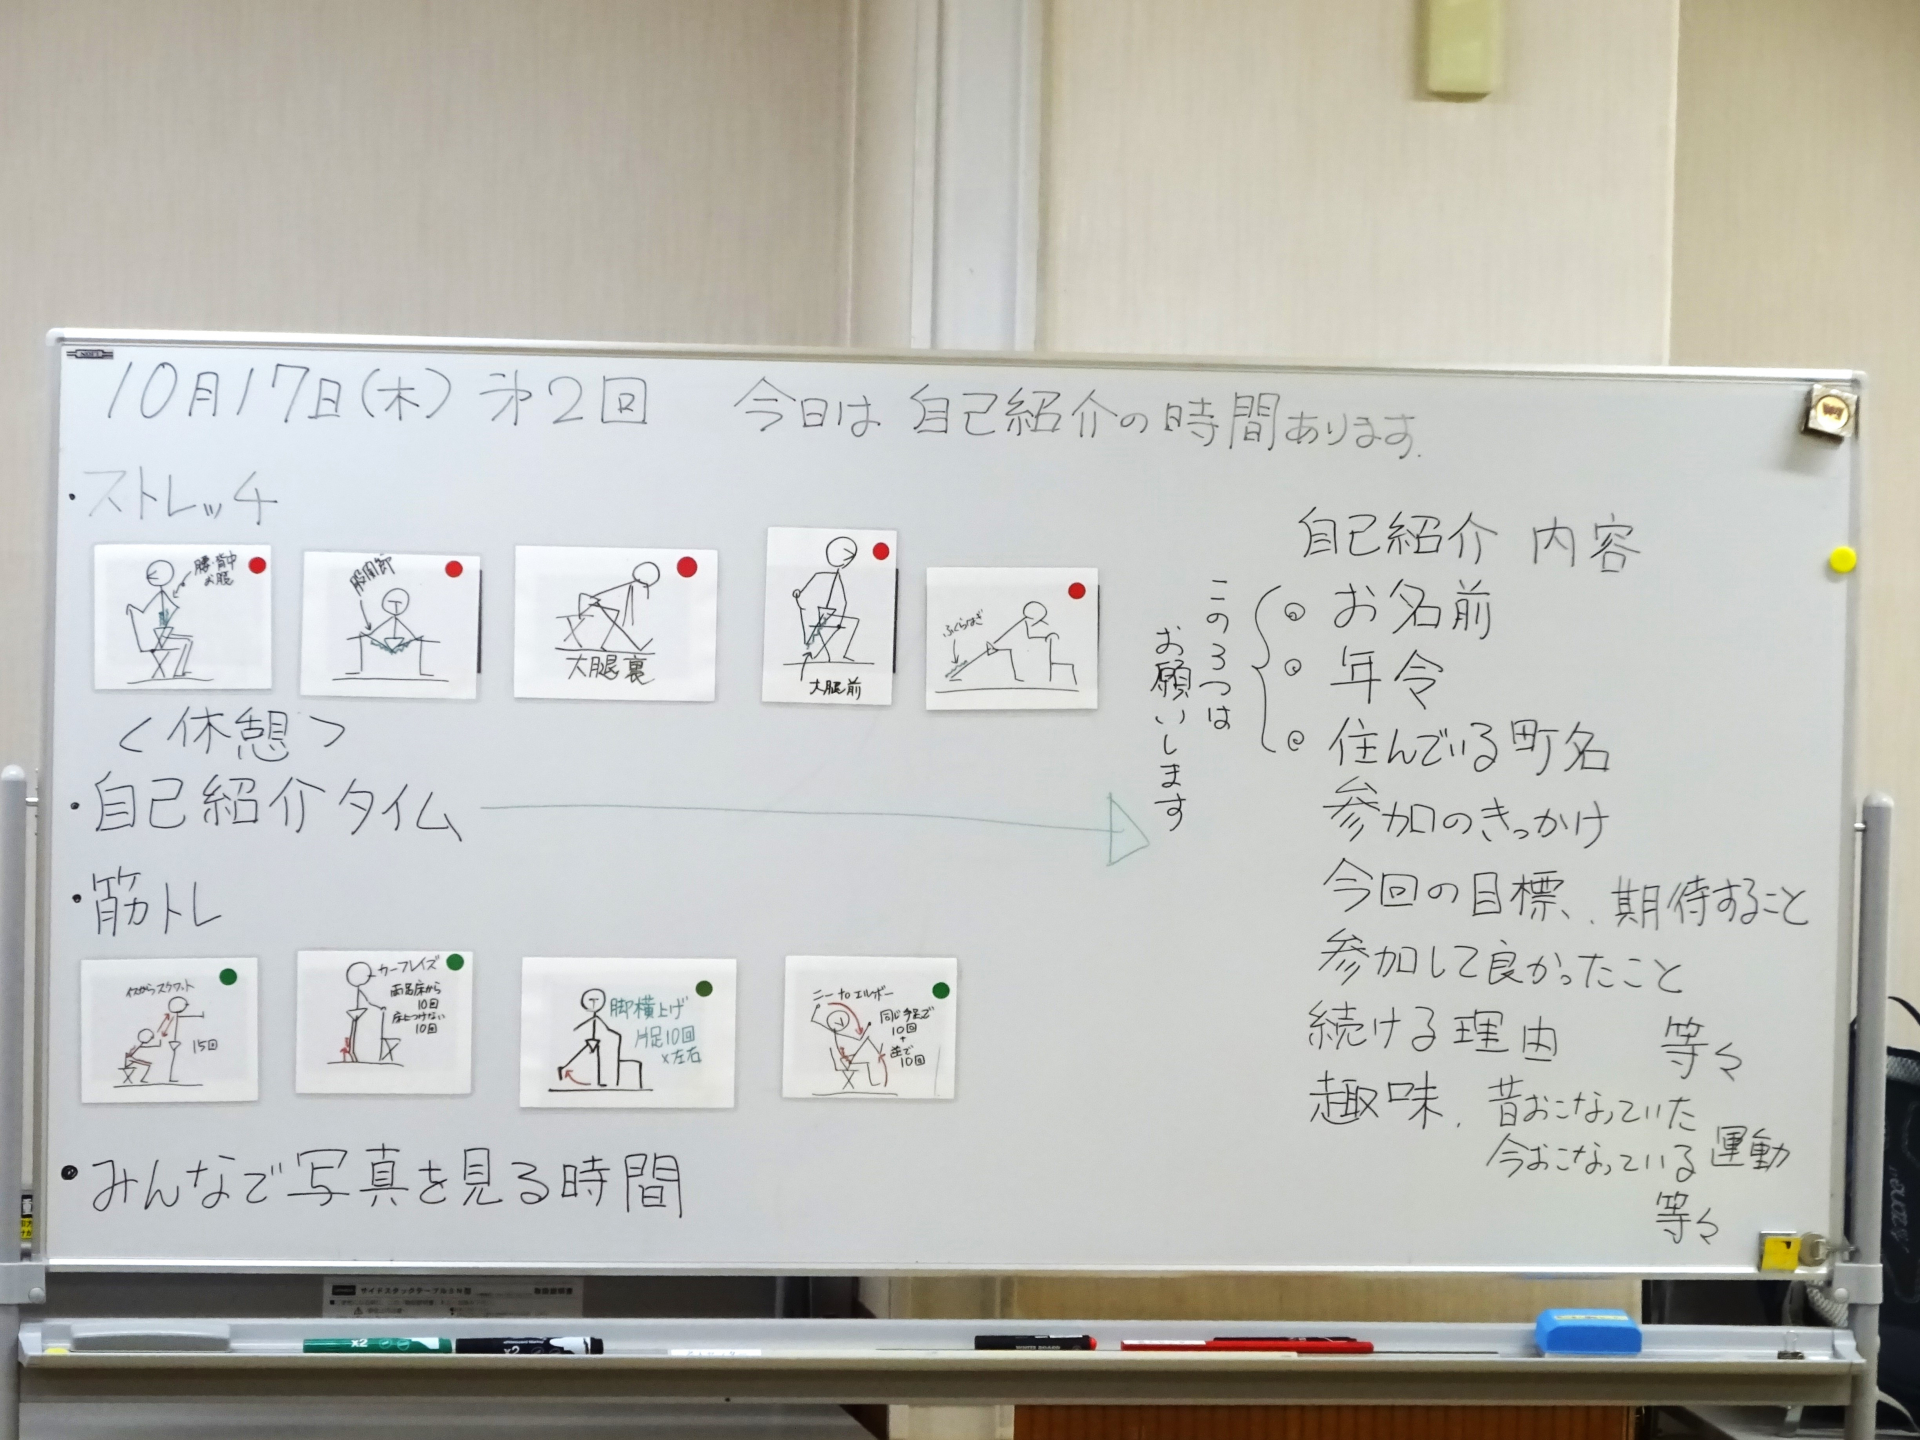 10月17日(木) 第2回 今日は 自己紹介の時間あります.
・ストレッチ
腰・背中
お腹
股関節
大腿裏
大腿前
ふくらはぎ
<休憩>
・自己紹介タイム
・筋トレ
イスからスクワット
15回
カーフレイズ
両足床から
10回
床につけない
10回
脚横上げ
片足10回
×左右
ニーtoエルボー
同じ手足で
10回
+
逆で
10回
・みんなで写真を見る時間
自己紹介 内容
この3つは
お願いします
◎ お名前
◎ 年令
◎ 住んでいる町名
参加のきっかけ
今回の目標、. 期待すること
参加して良かったこと
続ける理由 等々
趣味. 昔おこなっていた
今おこなっている 運動
等々
サイドスタックテーブル
取扱説明書
x2
x2
WHITE BOARD